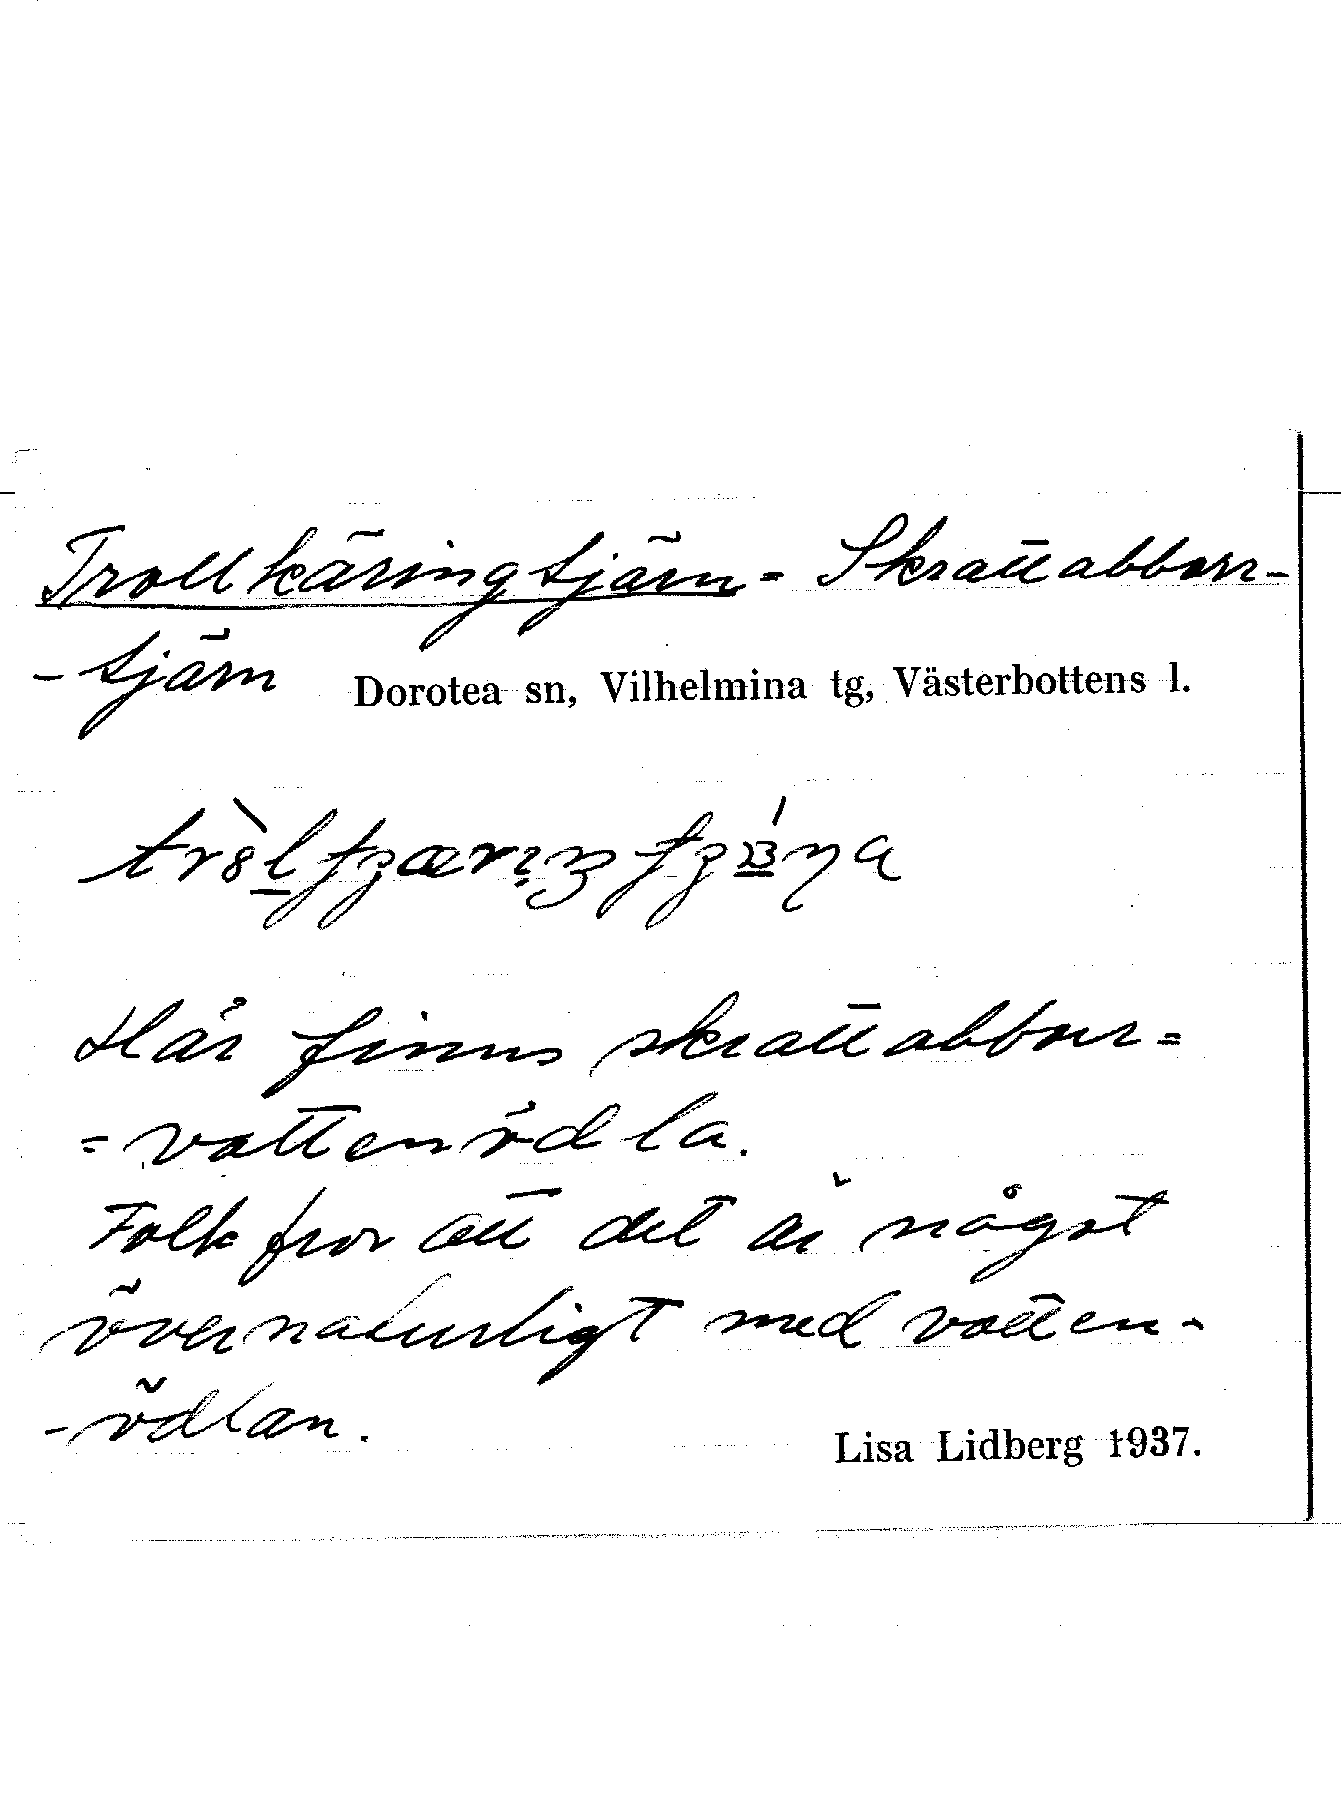 Trollkäringtjärn = Skrattabborr-
- tjärn Dorotea sn, Vilhelmina tg, Västerbottens l.
Här finns skrattabborr=
= vattenödla.
Folk tror att det är något
övernaturligt med vatten-
- ödlan.
Lisa Lidberg 1937.